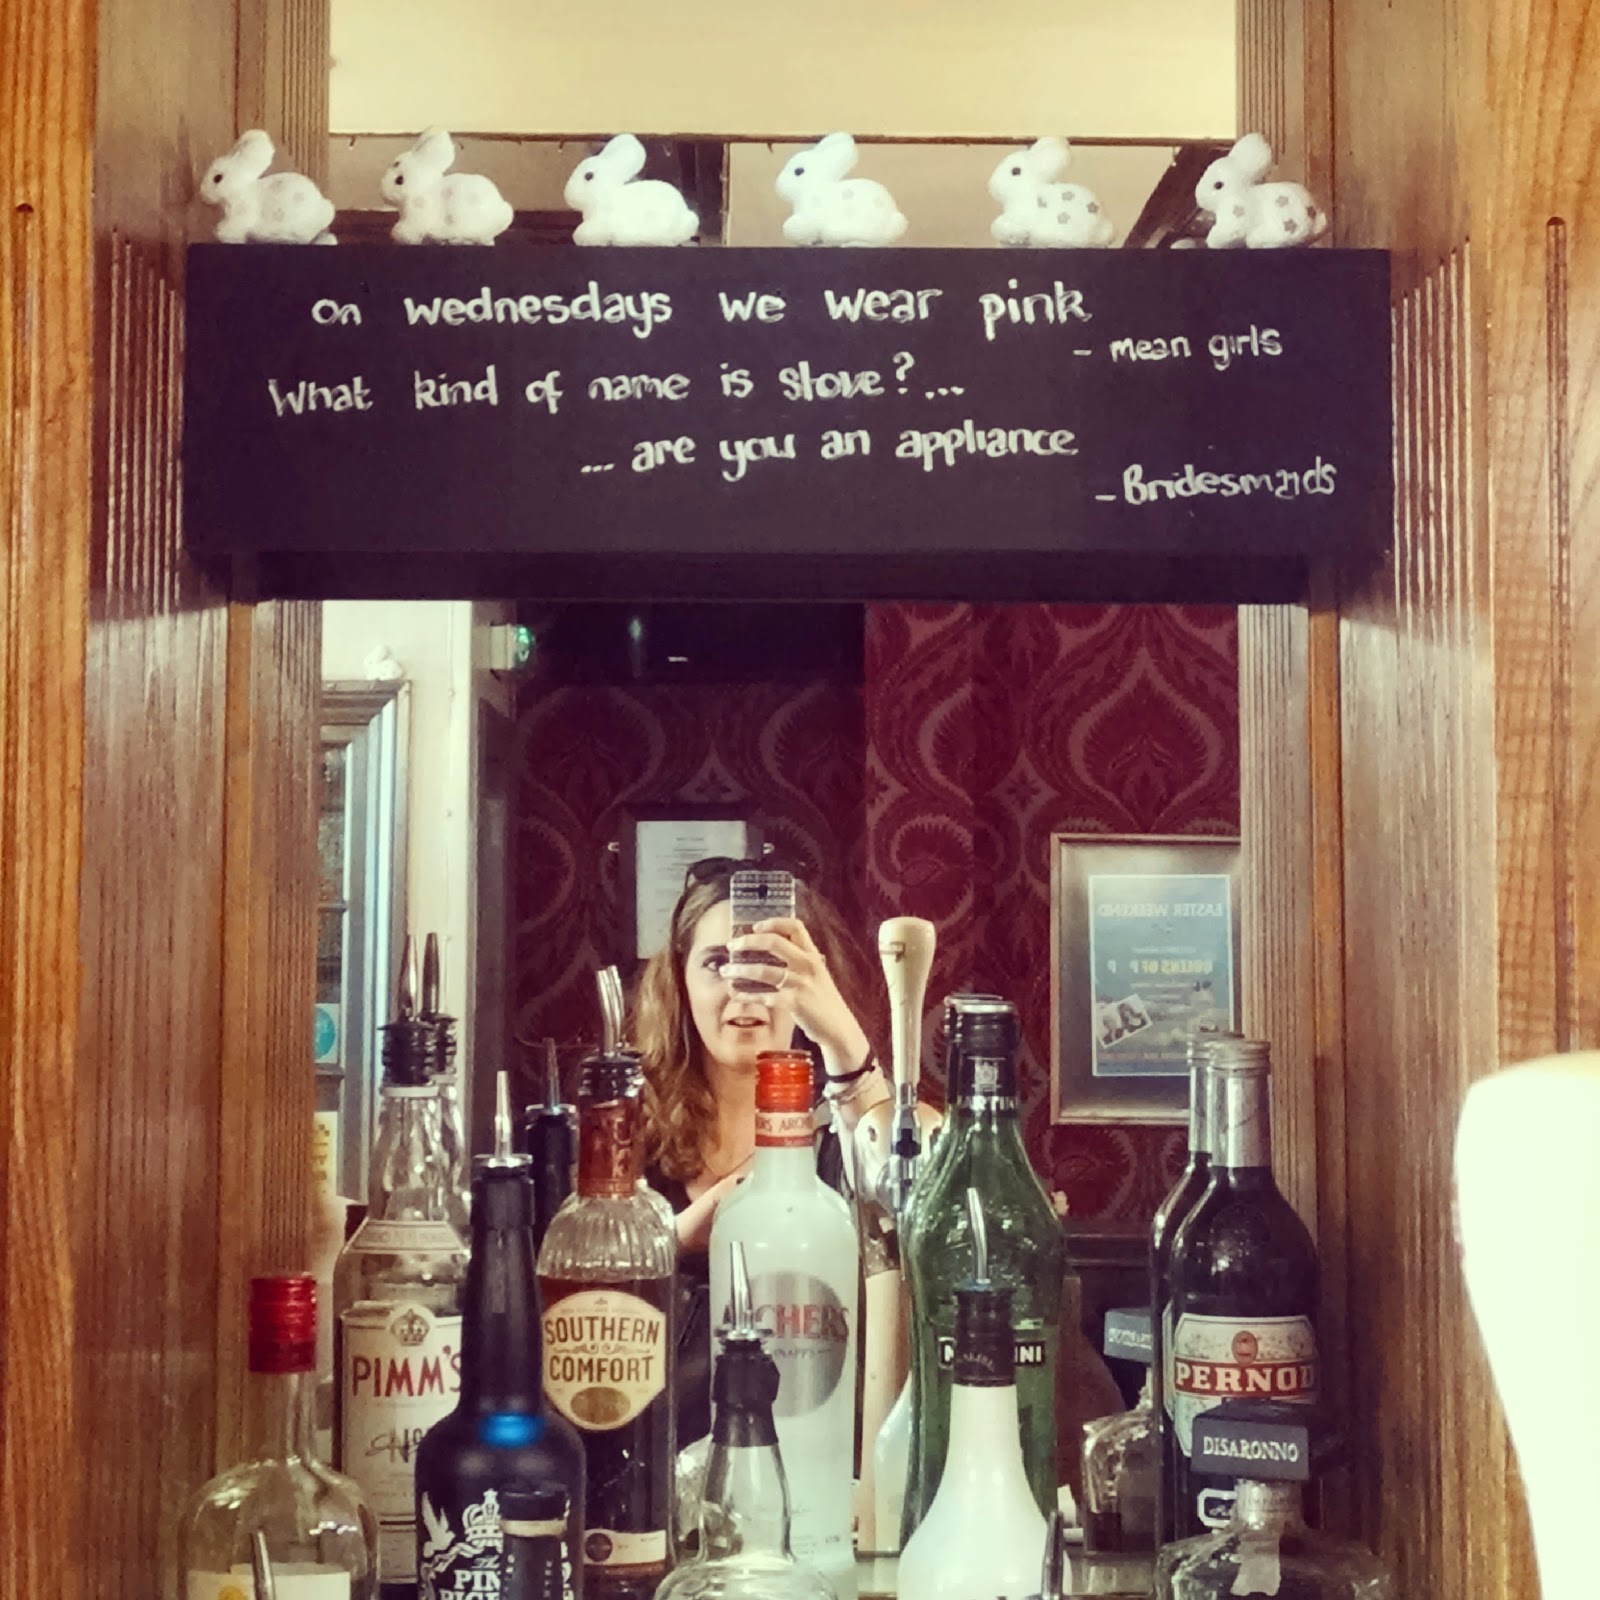 on wednesdays we wear pink
- mean girls
What kind of name is stove?...
... are you an appliance
- Bridesmaids
EASTER WEEKEND
QUEENS OF
MARTINI
ARCHERS
SCHNAPPS
SOUTHERN
COMFORT
PIMM'S
No
PERNOD
DISARONNO
The